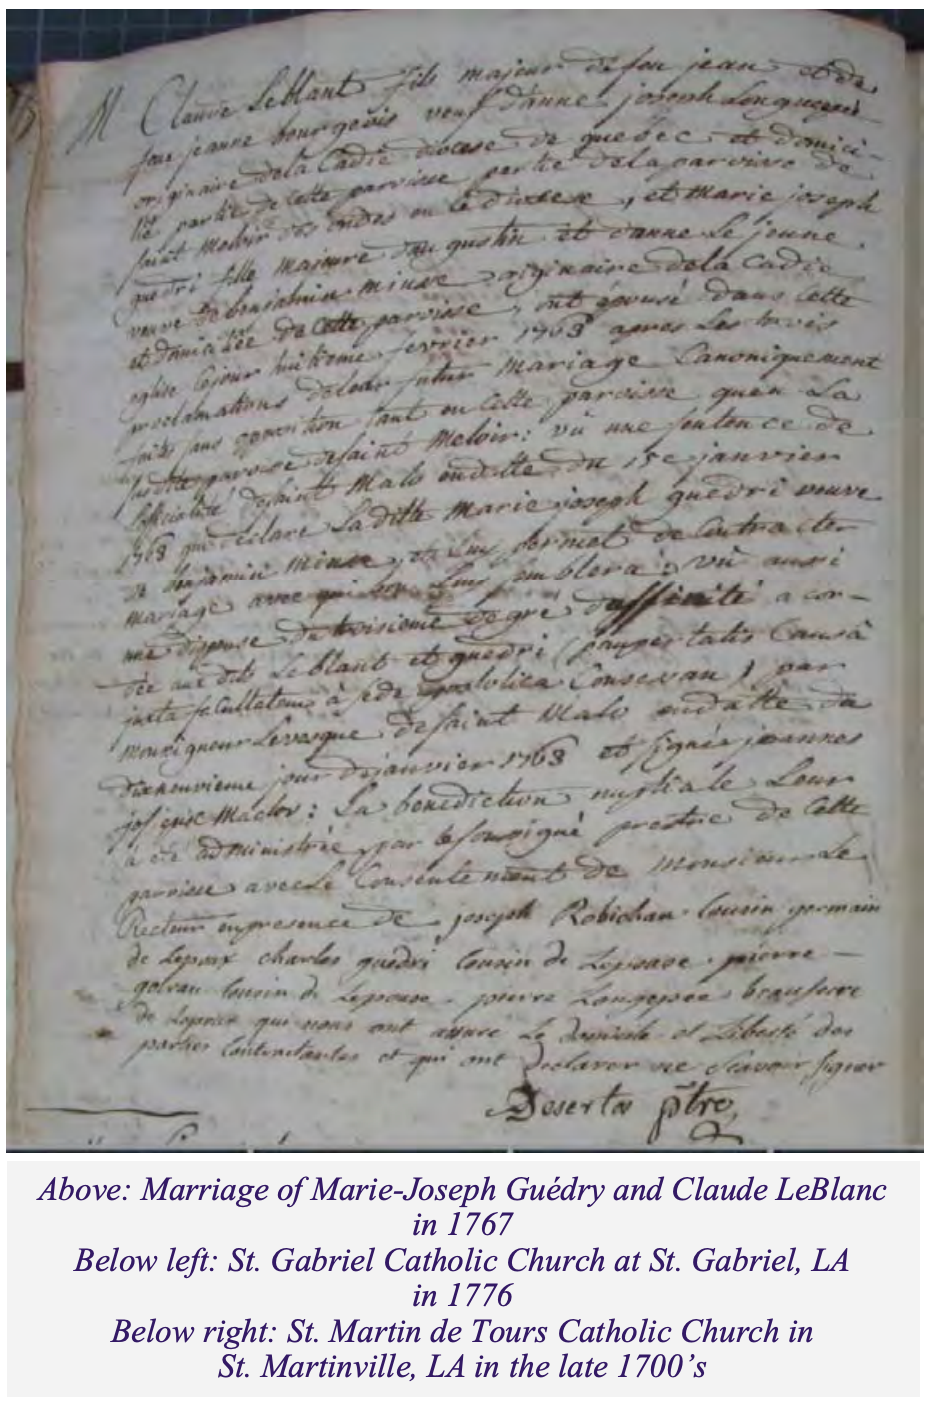 M Claude Leblanc fils majeur de feu jean et de
feue jeanne bourgeois veuf d'anne joseph Longuepee
originaire de la Cadie diocese de quebec et domici-
lié partie de cette paroisse partie de la paroisse de
saint Meloir des ondes en ce diocese, et Marie joseph
guedri fille majeure d'augustin et d'anne Le jeune
veuve de benjamin miuse originaire de la Cadie
et domiciliée de Cette paroisse, ont épousé dans Cette
eglise Ce jour huitieme fevrier 1768 apres Les trois
proclamations de leur futur Mariage Canoniquement
faites sans opposition tant en Cette paroisse quen La
susditte paroisse de saint Meloir: vû une sentence de
l'officialité de saint Malo en datte du 15e janvier
1768 qui declare La ditte Marie joseph guedri veuve
de benjamin miuse, et Luy permet de Contracter
mariage avec qui bon Luy semblera; vû aussi
une dispense du troisieme degré d'affinité accor-
dée aux dits Leblant et guedri (paupertatis Causâ
juxta facultatem à sede apostolica) par
monseigneur Leveque de saint Malo en datte du
dixneuvieme jour de janvier 1768 et signée joannes
La benediction nuptiale Leur
à eté administrée par le soussigné prestre de Cette
paroisse avec Le Consentement de monsieur Le
Recteur en presence de joseph Robichau Cousin germain
de Lepoux charles guédri Cousin de Lepouse pierre
Cousin de Lepouse pierre Longepée beaufrere
de Lepoux qui nous ont assuré Le domicile et Liberté des
parties Contractantes et qui ont declarer ne sçavoir signer
Desertos ptre,
Above: Marriage of Marie-Joseph Guédry and Claude LeBlanc
in 1767
Below left: St. Gabriel Catholic Church at St. Gabriel, LA
in 1776
Below right: St. Martin de Tours Catholic Church in
St. Martinville, LA in the late 1700’s